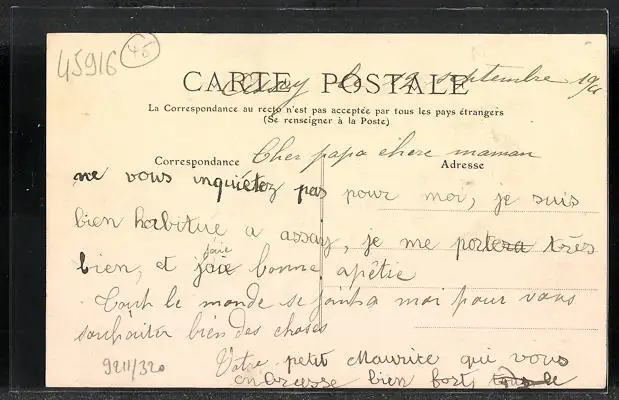 45916
45
CARTE POSTALE
Assay le 12 septembre 19
La Correspondance au recto n'est pas acceptée par tous les pays étrangers
(Se renseigner à la Poste)
Correspondance
Adresse
Cher papa chere maman
ne vous inquiétez pas pour moi, je suis
bien habitue a assay, je me portera très
bien, et joie bonne apétie
joie
Tout le monde se joint a moi pour vous
souhaiter bien des choses
Votre petit Maurice qui vous
embrasse bien fort
9211/320